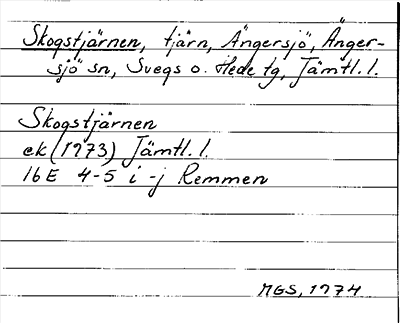 Skogstjärnen, tjärn, Ängersjö, Änger-
sjö sn, Svegs o. Hede tg, Jämtl. l.
Skogstjärnen
ek (1973) Jämtl. l.
16E 4-5 i-j Remmen
MGS, 1974